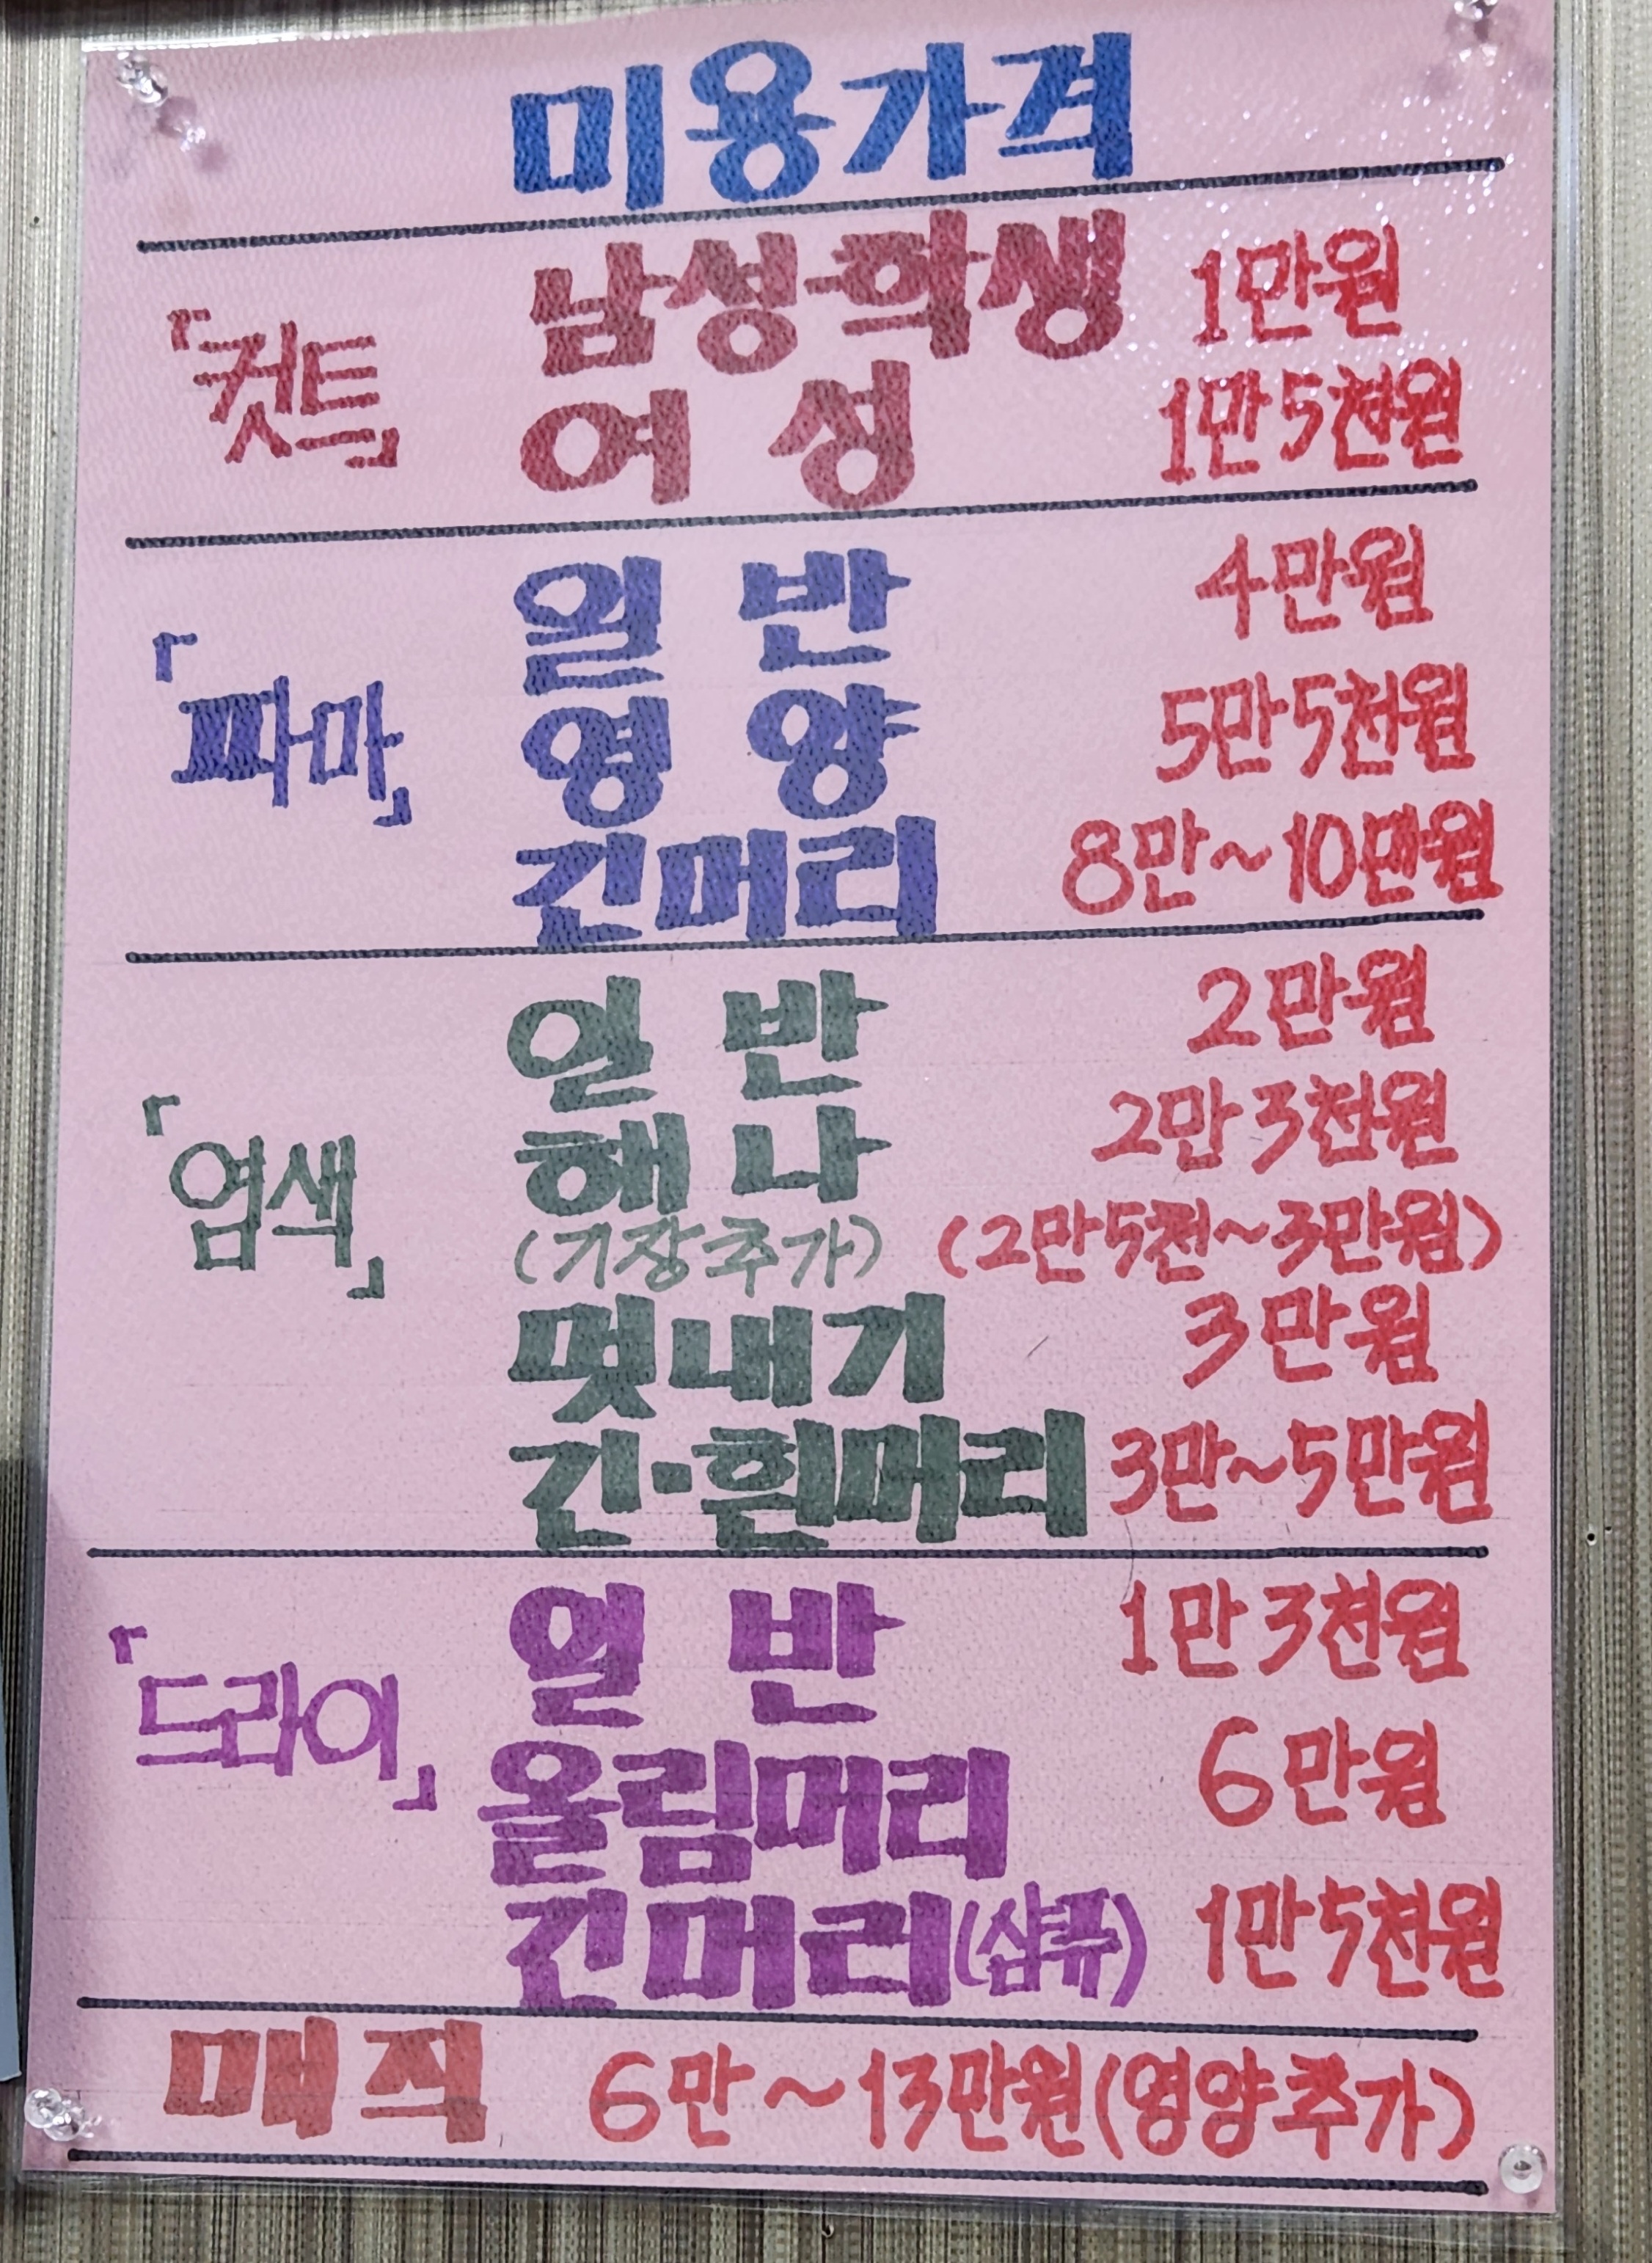 미용가격
남성·학생 1만원
「컷트」
여성 1만5천원
일반 4만원
영양 5만5천원
「파마」
긴머리 8만~10만원
일반 2만원
해나 2만3천원
「염색」
(기장추가) (2만5천~3만원)
멋내기 3만원
긴·흰머리 3만~5만원
일반 1만3천원
「드라이」
올림머리 6만원
긴머리(샴퓨) 1만5천원
매직 6만~13만원(영양추가)